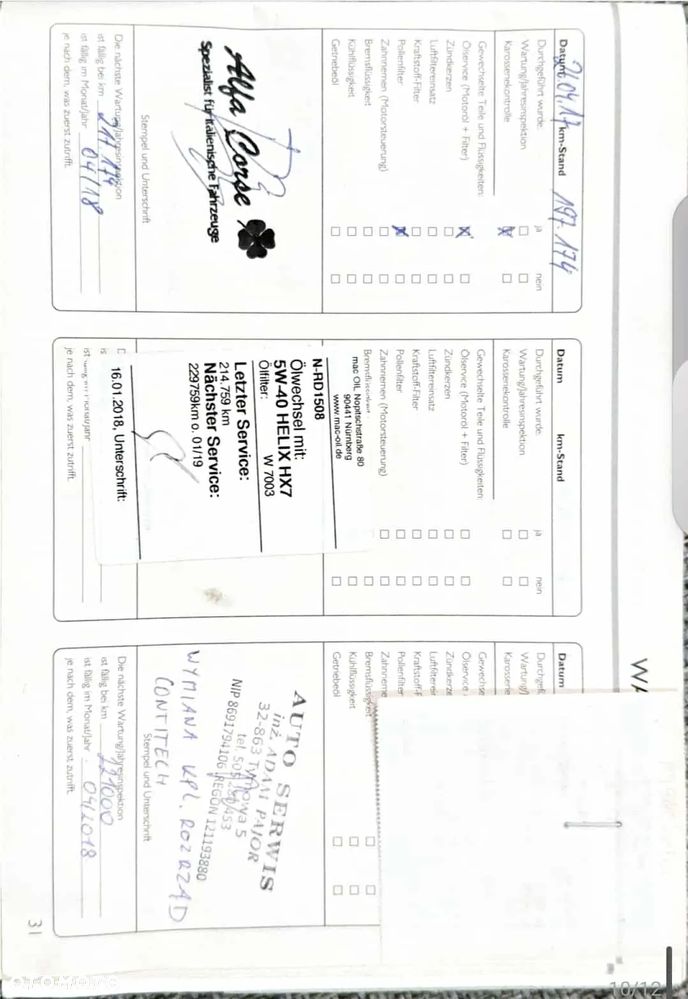 Datum 20.04.17 km-Stand 197.174
Durchgeführt wurde: ja nein
Wartung/Jahresinspektion
Karosseriekontrolle
Gewechselte Teile und Flüssigkeiten:
Ölservice (Motoröl + Filter)
Zündkerzen
Luftfiltereinsatz
Kraftstoff-Filter
Pollenfilter
Zahnriemen (Motorsteuerung)
Bremsflüssigkeit
Kühlflüssigkeit
Getriebeöl
Alfa Corse
Spezialist für italienische Fahrzeuge
Stempel und Unterschrift
Die nächste Wartung/Jahresinspektion
ist fällig bei km 217.174
ist fällig im Monat/Jahr 04/18
je nach dem, was zuerst zutrifft.
Datum km-Stand
Durchgeführt wurde: ja nein
Wartung/Jahresinspektion
Karosseriekontrolle
Gewechselte Teile und Flüssigkeiten:
Ölservice (Motoröl + Filter)
Zündkerzen
Luftfiltereinsatz
Kraftstoff-Filter
Pollenfilter
Zahnriemen (Motorsteuerung)
mac OIL Nopitschstraße 80
90441 Nürnberg
www.mac-oil.de
N-RD1508
Ölwechsel mit:
5W-40 HELIX HX7
Ölfilter: W 7003
Letzter Service:
214.759 km
Nächster Service:
229759km o. 01/19
16.01.2018, Unterschrift:
je nach dem, was zuerst zutrifft.
WA
Datum
Durchgef
Wartung/J
Karosserie
Gewechse
Ölservice
Zündkerze
Luftfilterein
Kraftstoff-F
Pollenfilter
Zahnrieme
Bremsflüssigkeit
Kühlflüssigkeit
Getriebeöl
AUTO SERWIS
inż. ADAM PAJOR
32-863 Tymowa 5
NIP 8691794106, REGON 121193880
WYMIANA KPL. ROZRZĄD
CONTITECH
Stempel und Unterschrift
Die nächste Wartung/Jahresinspektion
ist fällig bei km 221000
ist fällig im Monat/Jahr 04/2018
je nach dem, was zuerst zutrifft.
31
10/12